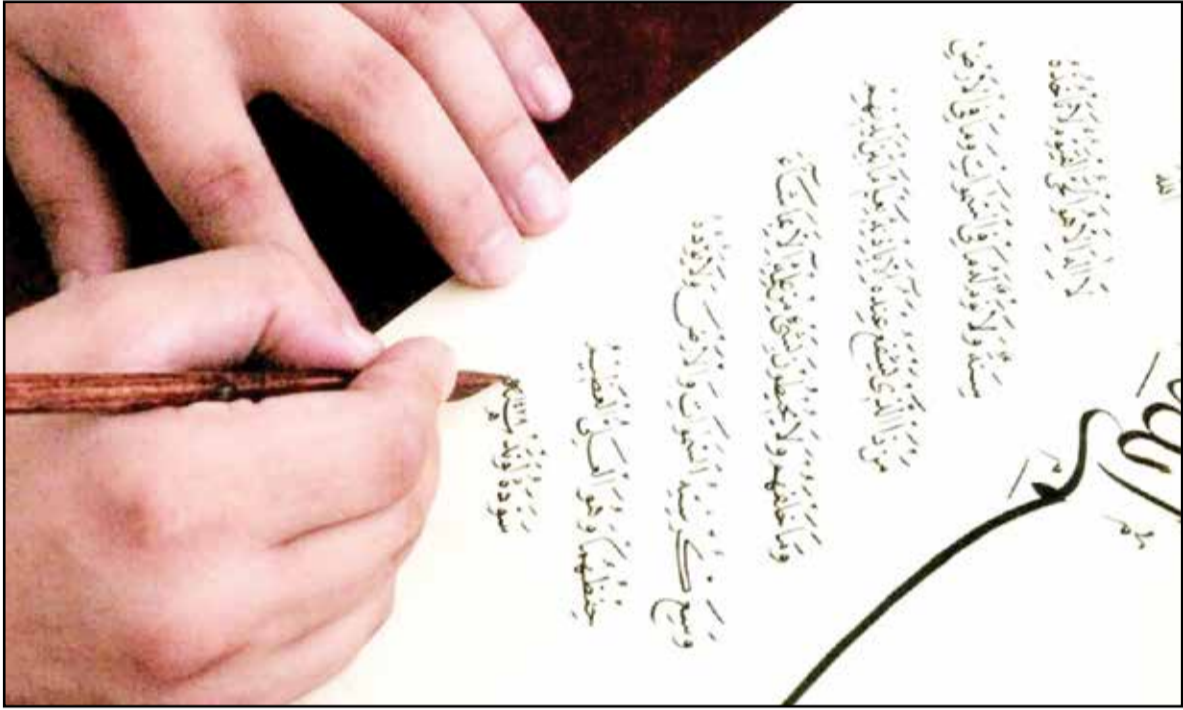 الله
لَا إِلَهَ إِلَّا هُوَ الْحَيُّ الْقَيُّومُ لَا تَأْخُذُهُ
سِنَةٌ وَلَا نَوْمٌ لَهُ مَا فِي السَّمَوَاتِ وَمَا فِي الْأَرْضِ
مَنْ ذَا الَّذِي يَشْفَعُ عِنْدَهُ إِلَّا بِإِذْنِهِ يَعْلَمُ مَا بَيْنَ أَيْدِيهِمْ
وَمَا خَلْفَهُمْ وَلَا يُحِيطُونَ بِشَيْءٍ مِنْ عِلْمِهِ إِلَّا بِمَا شَاءَ
وَسِعَ كُرْسِيُّهُ السَّمَوَاتِ وَالْأَرْضَ وَلَا يَئُودُهُ
حِفْظُهُمَا وَهُوَ الْعَلِيُّ الْعَظِيمُ